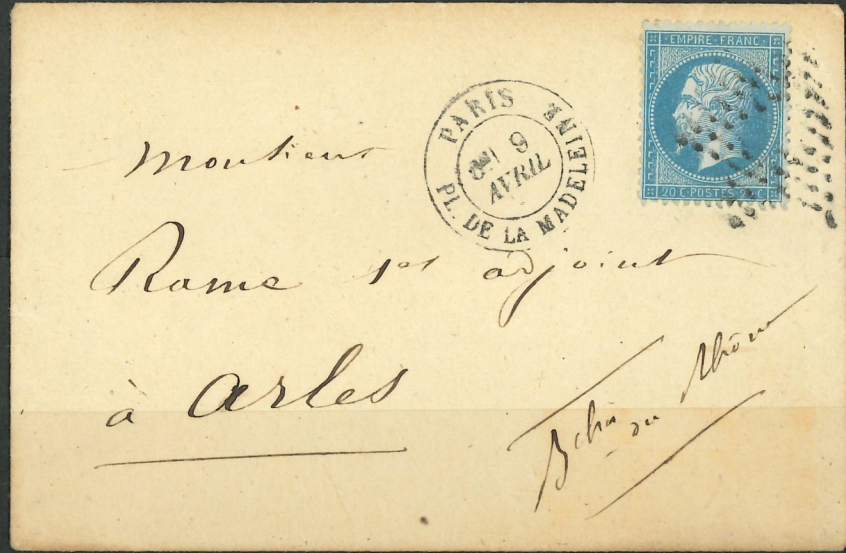 EMPIRE FRANC
20 C · POSTES · 20 C
PARIS
9
AVRIL
PL. DE LA MADELEINE
Monsieur
Rame 1er adjoint
à Arles
Bches du Rhône